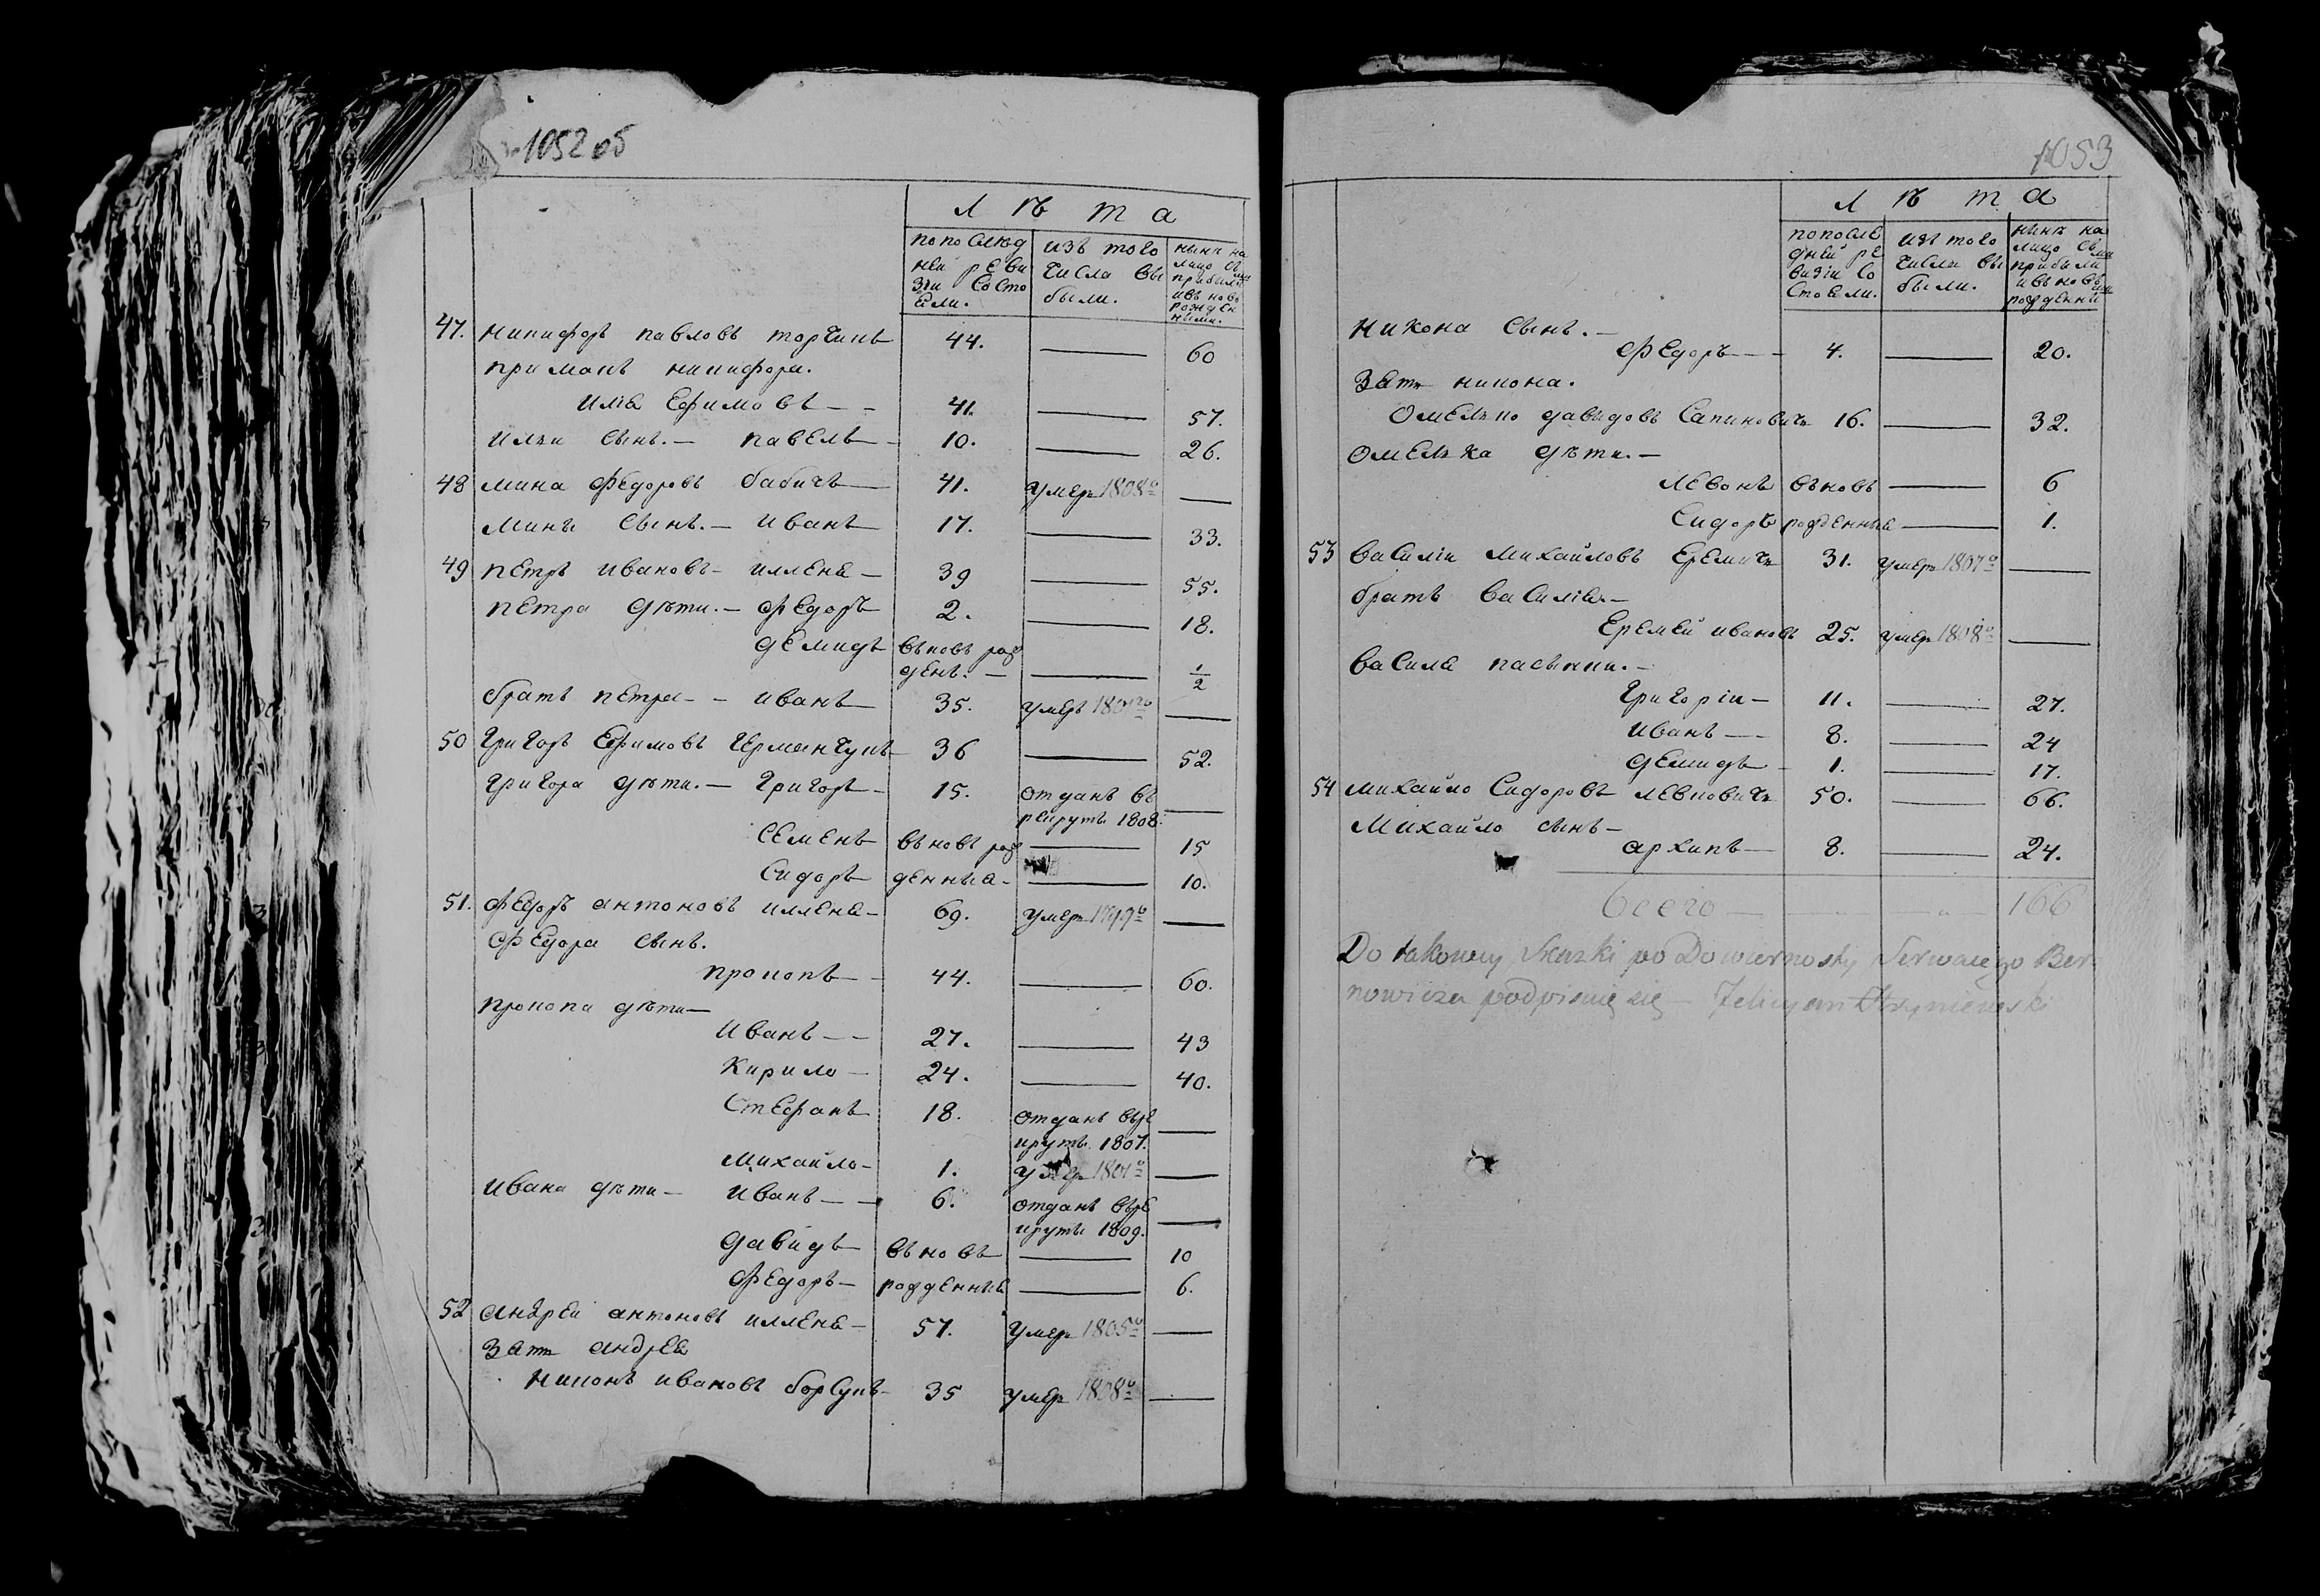 1052 об
Лѣта
по послѣд
ней реви
зіи состо
яли.
изъ того
числа вы
были.
нынѣ на
лицо съ
прибылы
и въновь
рожден
ными.
47. Никифоръ павловъ торчинъ 44. — 60
примакъ никифора.
Илія Ефимовъ — 41. — 57.
Ильи сынъ. — павелъ — 10. — 26.
48 Мина Федоровъ бабичъ — 41. умеръ 1808го —
Мины сынъ. — иванъ 17. — 33.
49 Петръ ивановъ — илленя — 39 — 55.
Петра дѣти. — Федоръ 2. — 18.
демидъ вновь рож
денъ. — — 1/2
братъ петра — — иванъ 35. умеръ 1801го —
50 Григоръ Ефимовъ Германчукъ 36 — 52.
Григора дѣти. — Григоръ — 15. отданъ въ —
рекруты 1808.
Семенъ вновь рож — 15
Сидоръ денныя — — 10.
51. Федоръ антоновъ илленя — 69. умеръ 1799го —
Федора сынъ.
прокопъ — 44. — 60.
Прокопа дѣти —
Иванъ — — 27. — 43
Кирило — 24. — 40.
Стефанъ 18. отданъ въре —
круты 1807.
Михайло — 1. умеръ 1801го —
Ивана дѣти — Иванъ — — 6. отданъ въре —
круты 1809.
Давидъ вновь — 10
Федоръ — рожденныя — 6.
52 Андрей антоновъ илленя — 57. умеръ 1805го —
Зять андрея
Никонъ ивановъ борсукъ — 35 умеръ 1808го —
1053
Лѣта
по послѣ
дней ре
визіи со
стояли.
изъ того
числа вы
были.
нынѣ на
лицо съ
прибыли
и въновь
рожденны
Никона сынъ. —
Федоръ — — 4. — 20.
Зять никона.
Омелько давыдовъ Сапиновичъ 16. — 32.
Омелька дѣти. —
левонъ вновь — 6
Сидоръ рожденныя — 1.
53 Василій Михайловъ Еремичъ 31. умеръ 1807го —
братъ василія. —
Еремей ивановъ 25. умеръ 1808го —
Василя пасынки. —
Григорій — 11. — 27.
Иванъ — 8. — 24
демидъ — 1. — 17.
54 Михайло Сидоровъ левковичъ 50. — 66.
Михайло сынъ —
архипъ — 8. — 24.
всего — " — 166
Do takowey Skazki po Dowiernosty Serwacego Ber-
nowicza podpisuię się — Felicyan